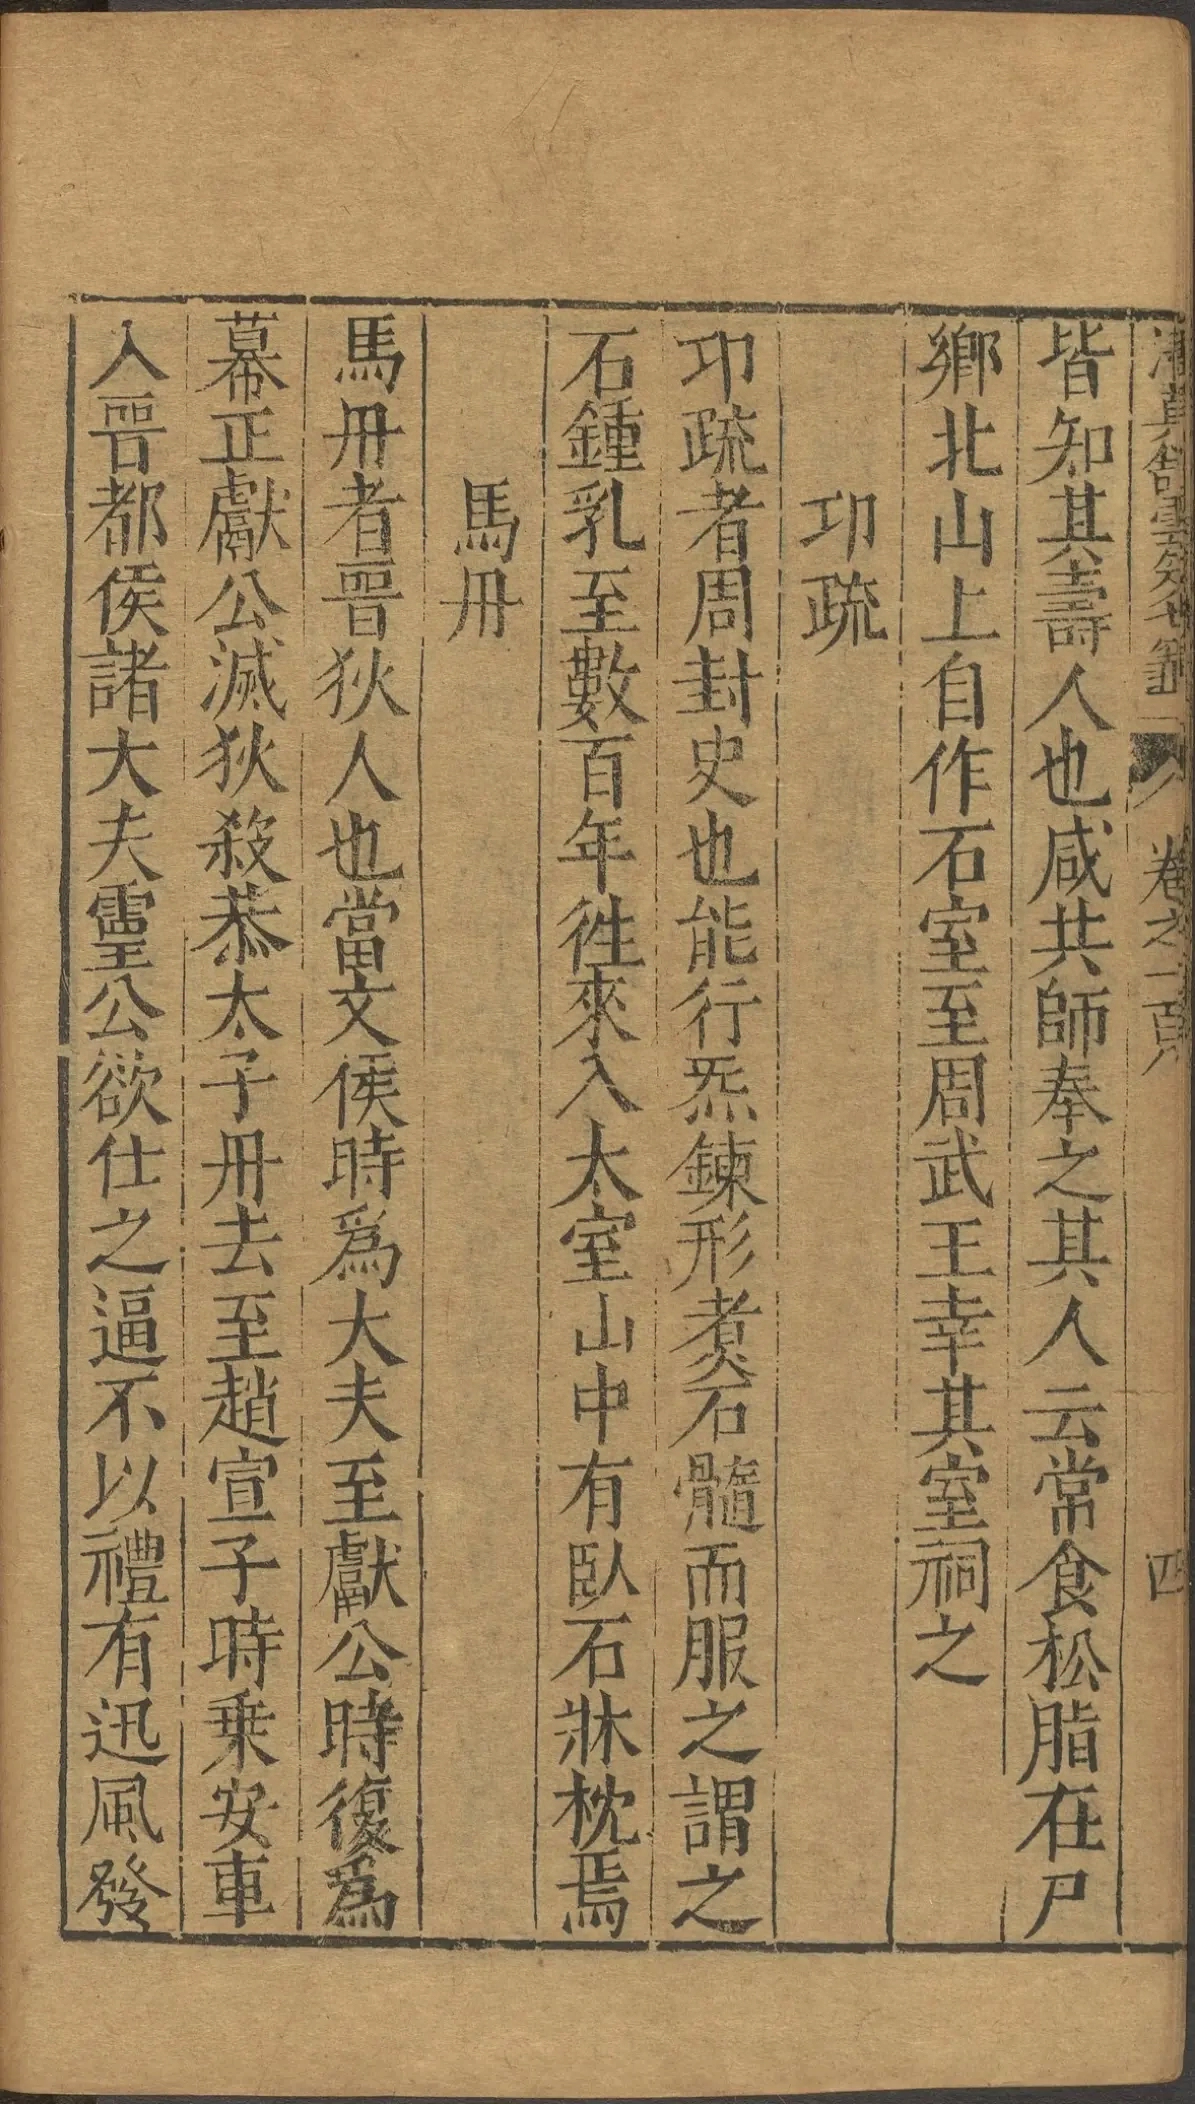 清真館雲笈七籤
卷之一百
四
皆知其壽人也咸共師奉之其人云常食松脂在尸
鄉北山上自作石室至周武王幸其室祠之
卭疏
卭疏者周封史也能行炁鍊形煑石髓而服之謂之
石鍾乳至數百年徃來入太室山中有臥石牀枕焉
馬丹
馬丹者晉狄人也當文侯時爲大夫至獻公時復爲
幕正獻公滅狄殺恭太子丹去至趙宣子時乗安車
入晉都候諸大夫靈公欲仕之逼不以禮有迅風發